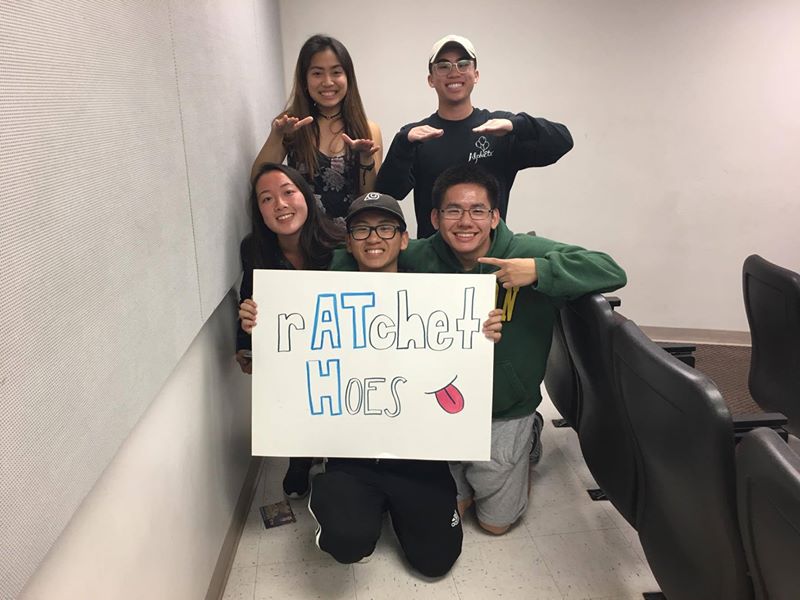 rATchet
HOES